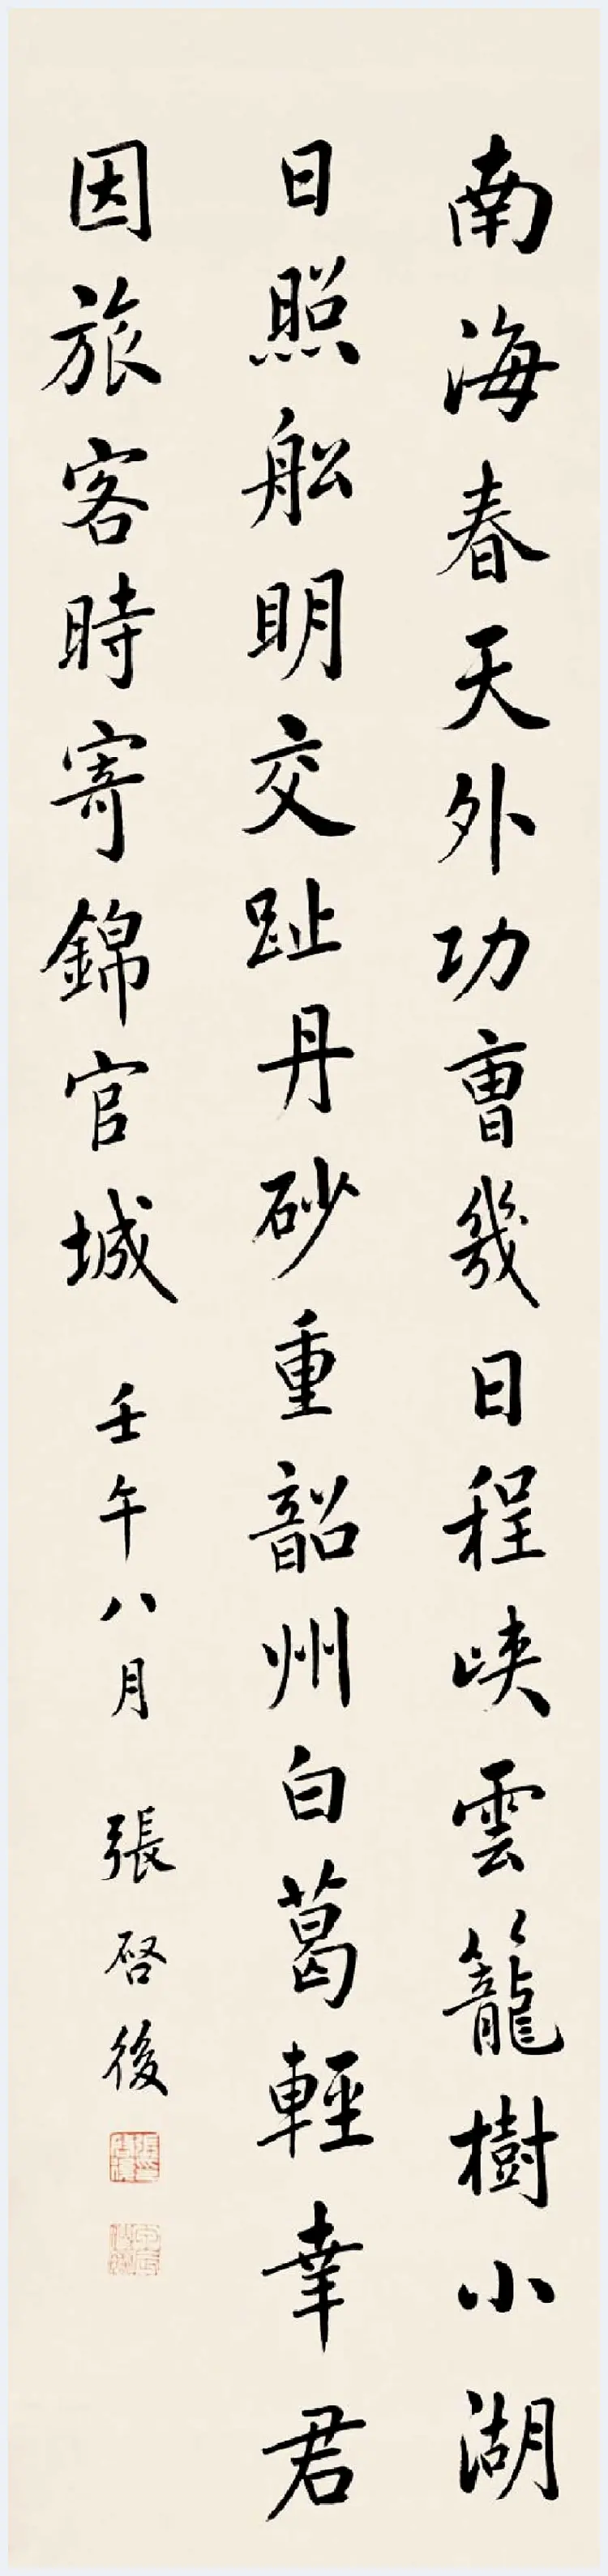 南海春天外功曹幾日程峽雲籠樹小湖
日照船明交趾丹砂重韶州白葛輕幸君
因旅客時寄錦官城 壬午八月 張啓後